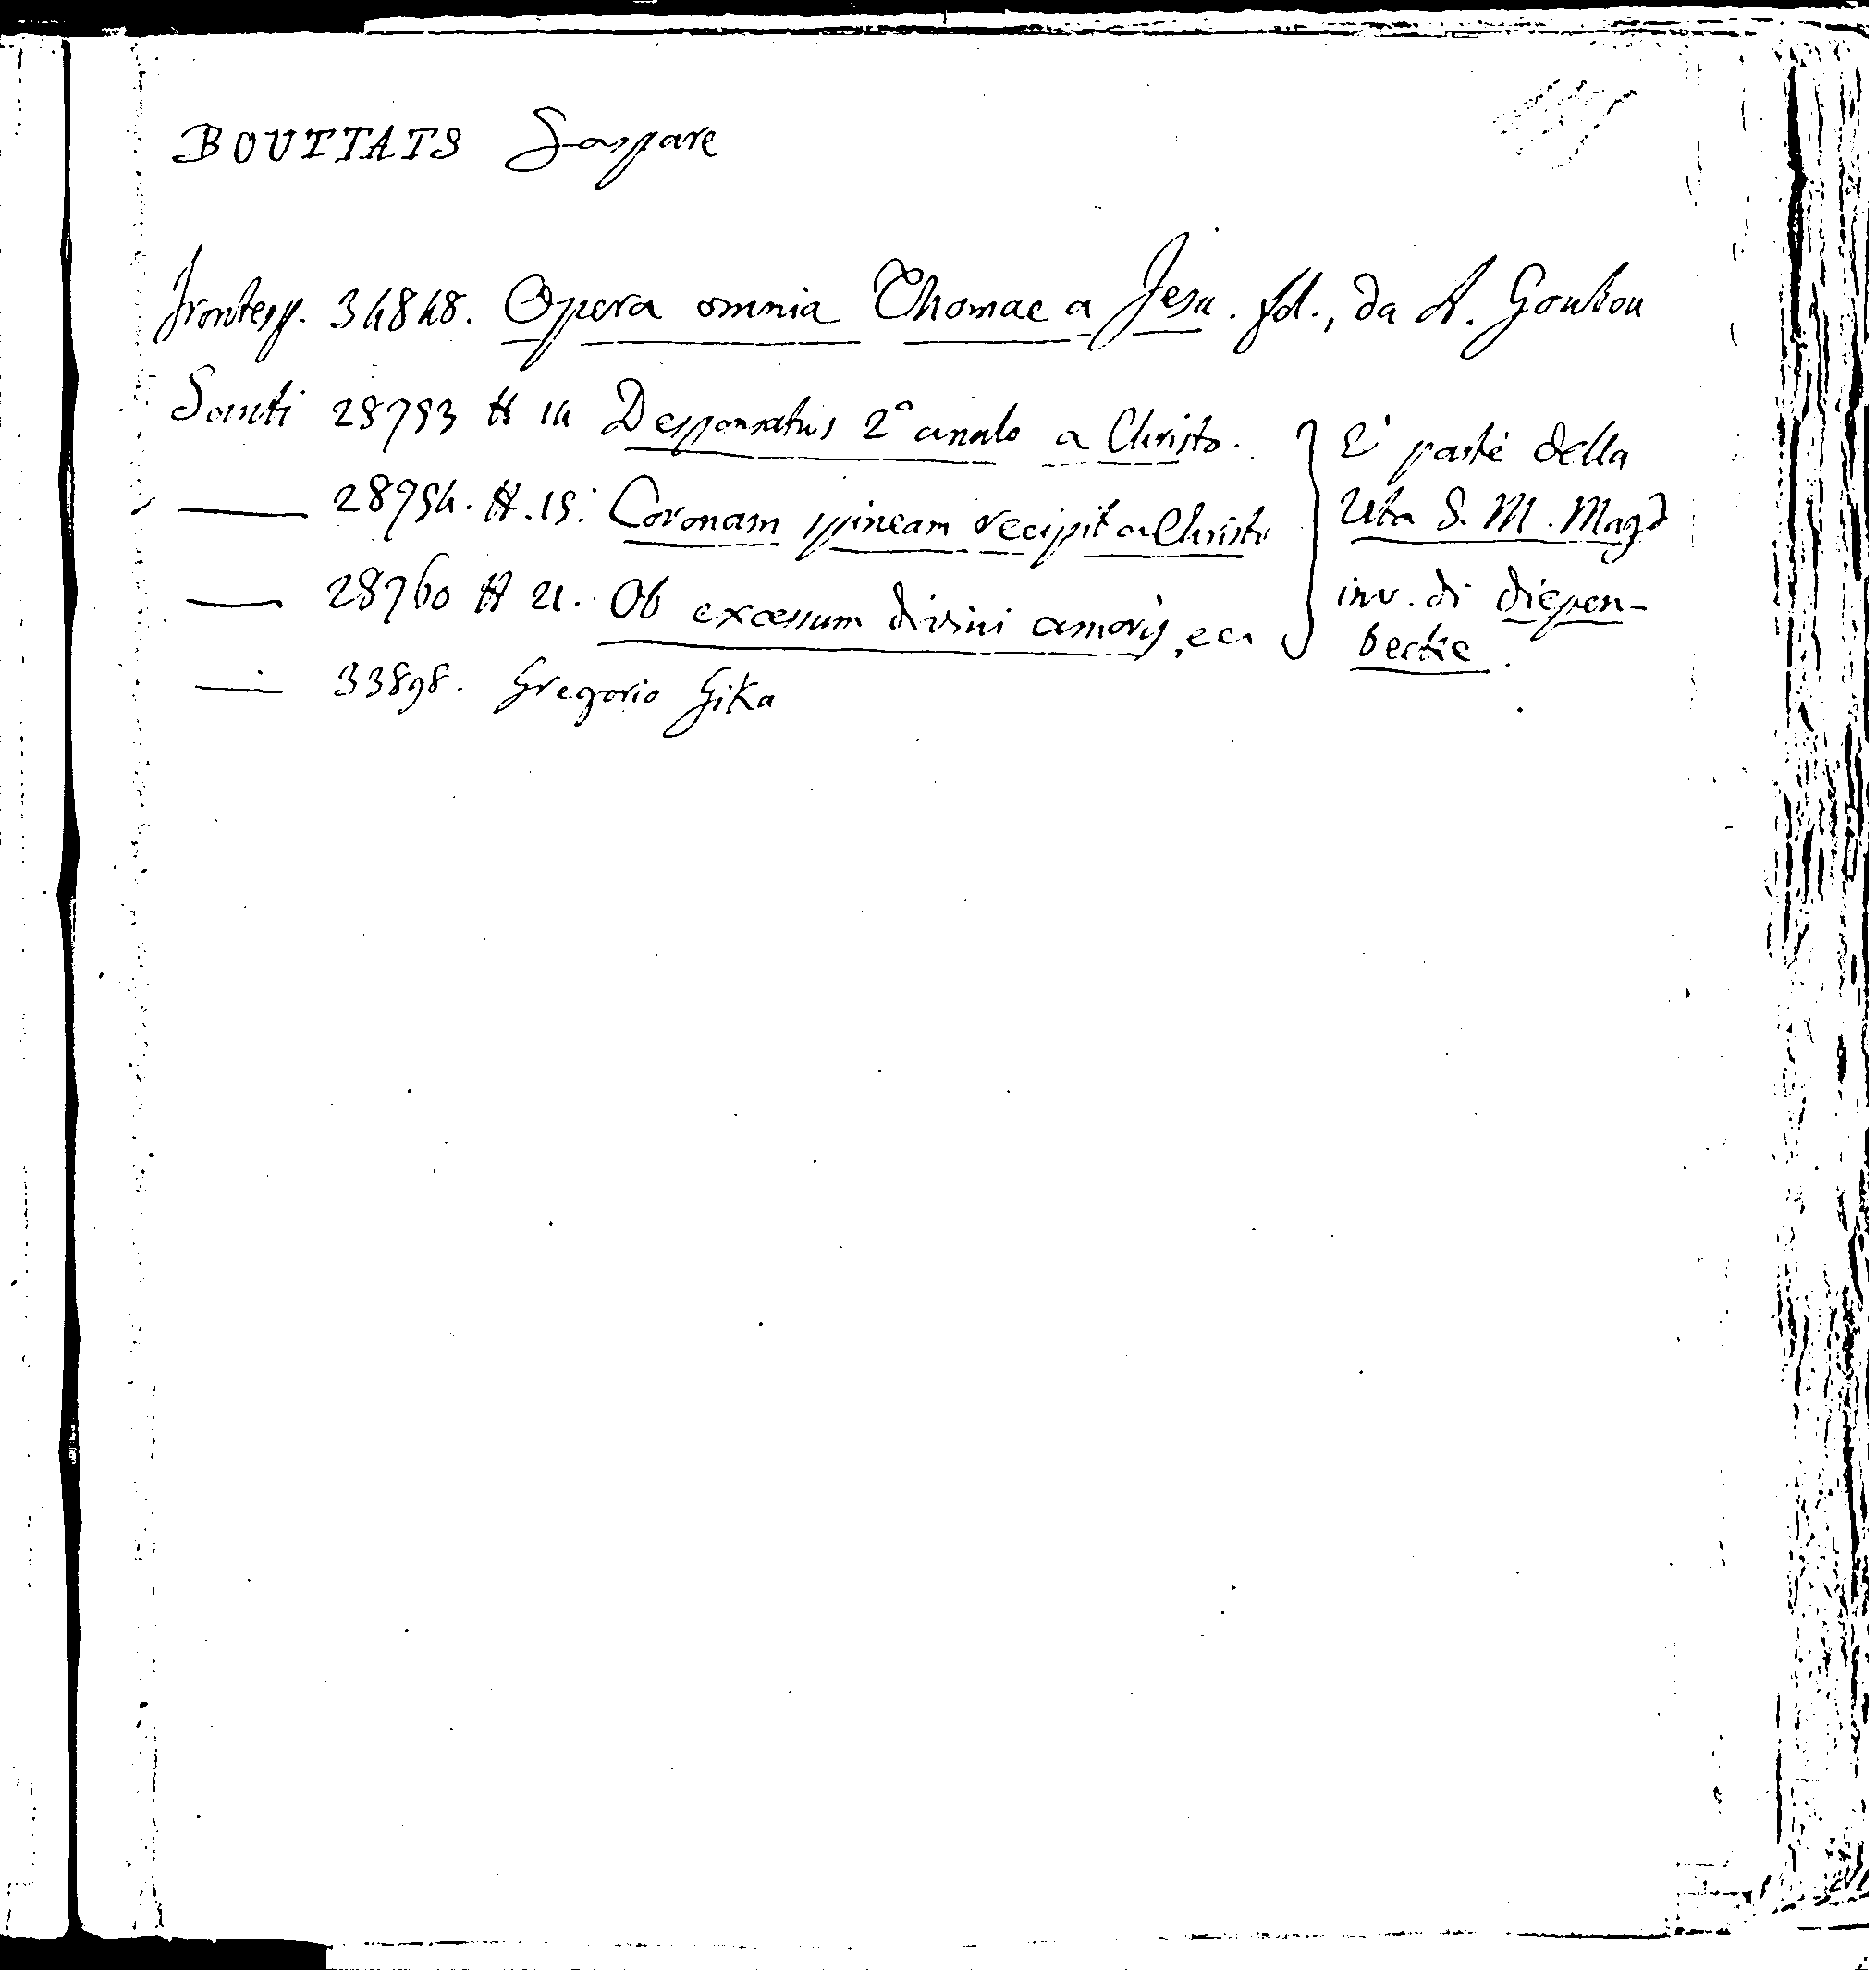 BOUTTATS Gaspare
Frontesp. 34848. Opera omnia Thomae a Jesu. fol., da A. Goubou
Santi 28753 # 14 Desponsatus 2º anulo a Christo.
— 28754. # .15. Coronam spineam recipit a Christo
— 28760 # 21. Ob excessum divini amoris, ecc
— 33898. Gregorio Gika
È parte della
Vita S. M. Magd
inv. di Diepen-
becke.